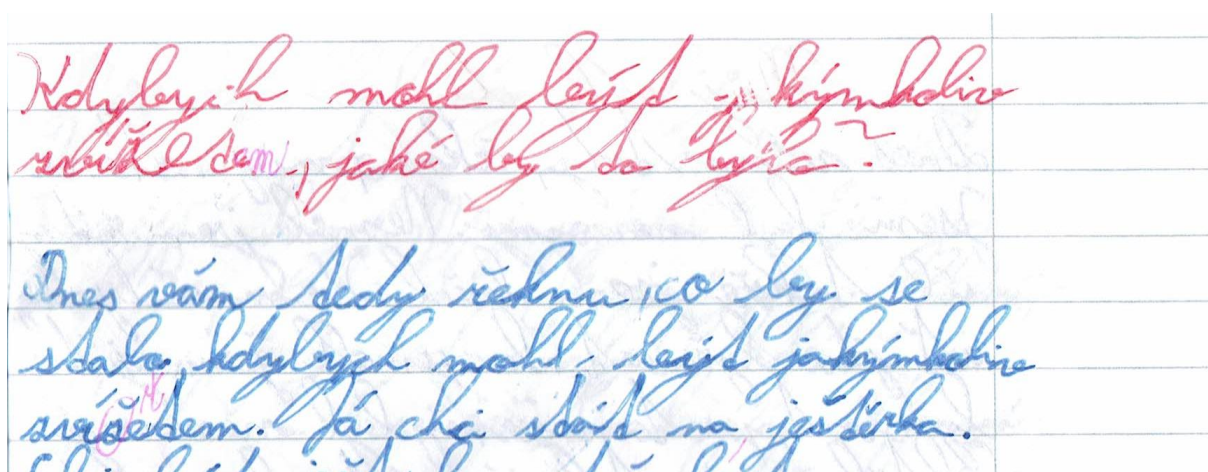 Kdybych mohl být jakýmkoliv
zvířetem, jaké by to bylo?
Dnes vám tedy řeknu, co by se
stalo, kdybych mohl být jakýmkoliv
zvířetem. Já chci stát na ještěrka.